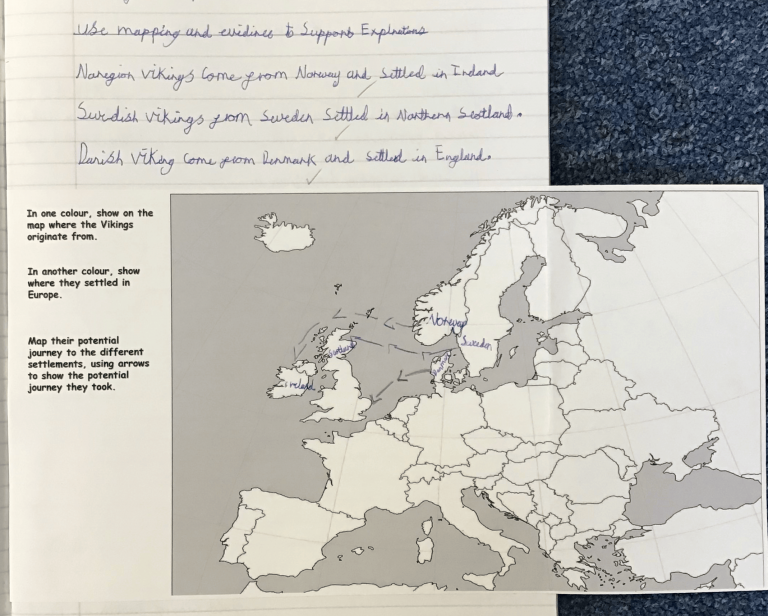 Use mapping and evidince to Support Explnations
Noregion vikings Come from Norway and settled in Ireland
Swedish vikings from Sweden Settled in Northern Scotland.
Danish Viking Come from Denmark and settled in England.
In one colour, show on the
map where the Vikings
originate from.
In another colour, show
where they settled in
Europe.
Map their potential
journey to the different
settlements, using arrows
to show the potential
journey they took.
Norway
Sweden
Scotland
Denmark
ireland